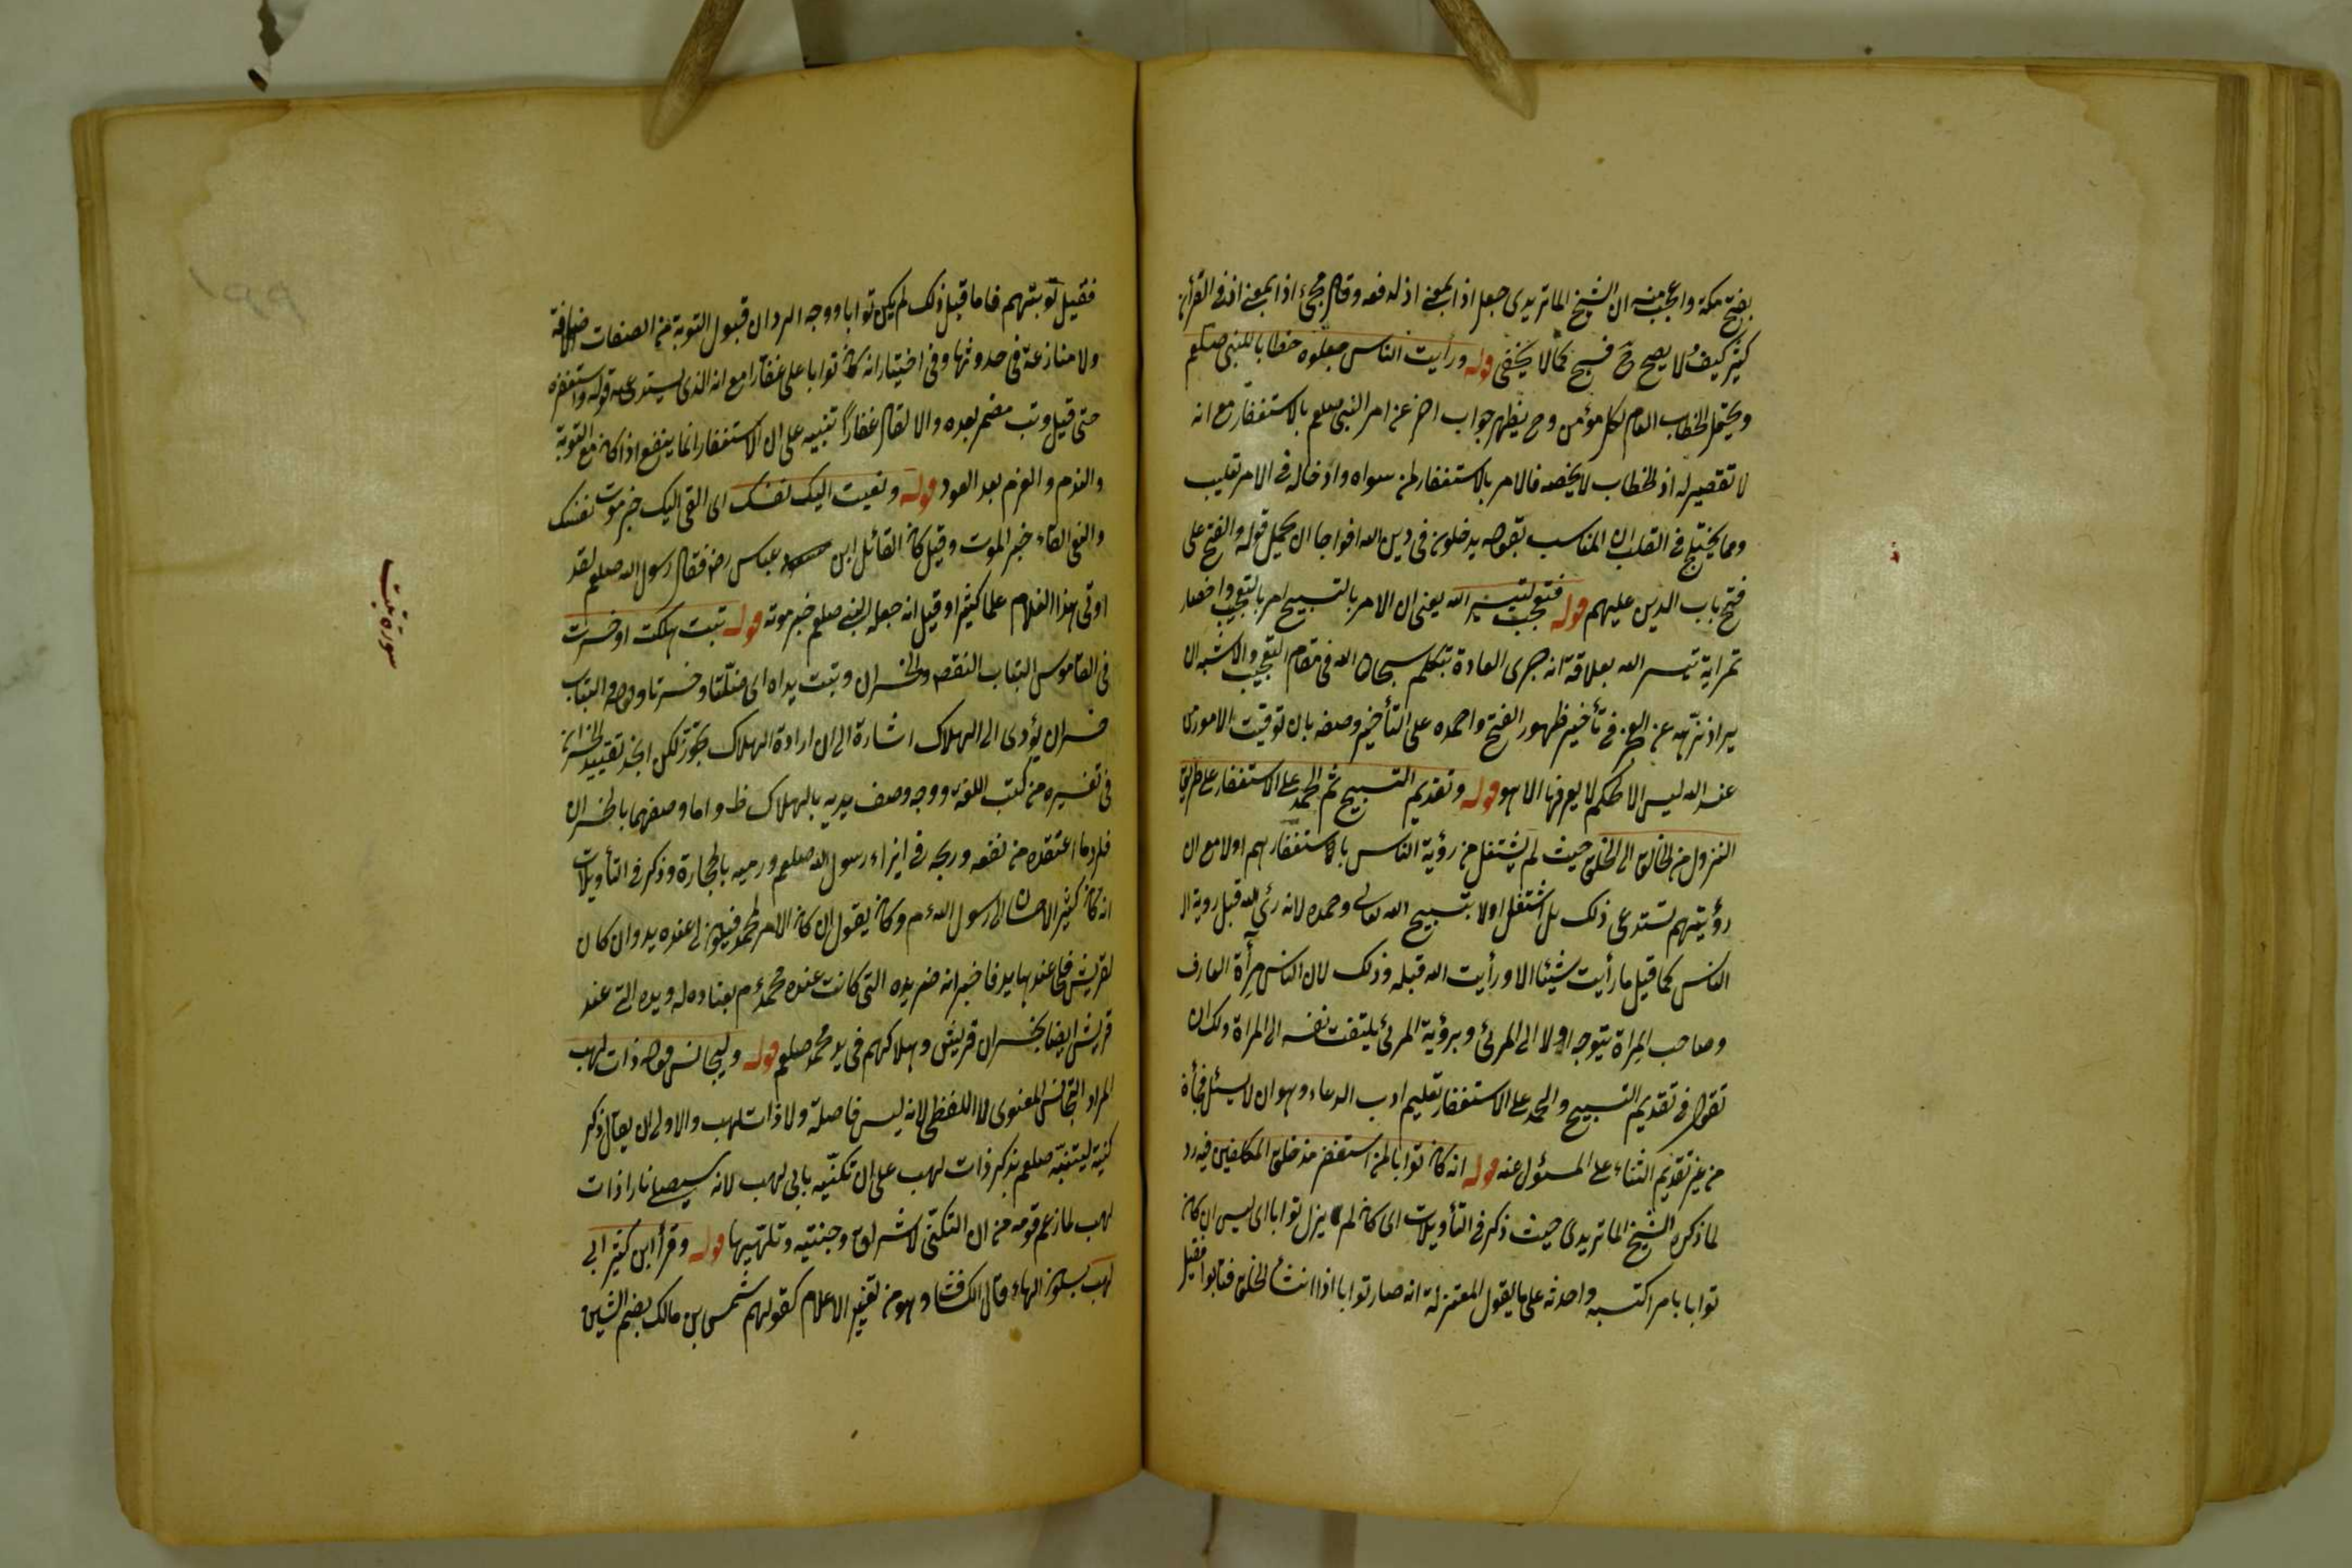 بفتح مكة واعجب منه ان الشيخ الماتريدى جعل اذا بمعنى اذ لدفعه وقال مجئ اذا بمعنى اذ فى القرآن
كثير كيف ولا يصح ح فسبح كما لا يخفى قوله ورأيت الناس جعلوه خطابا للنبى صلعم
ويحتمل الخطاب العام لكل مؤمن وح يظهر جواب اخر عن امر النبى صلعم بالاستغفار مع انه
لا تقصير له اذ الخطاب لا يخصه فالامر بالاستغفار لمن سواه وادخاله فى الامر تغليب
ومما يختلج فى القلب ان المناسب بقوله يدخلون فى دين الله افواجا ان يحمل قوله والفتح على
فتح باب الدين عليهم قوله فتعجب لتيسير الله يعنى ان الامر بالتسبيح امر بالتعجب واحضار
ثمراية تيسر الله بعلاقة انه جرى العادة بتكلم سبحان الله فى مقام التعجب والاشبه ان
يراد نزّهه عن العجز فى تأخير ظهور الفتح واحمده على التأخير وصفه بان توقيت الامور من
عند الله ليس الا لحكم لا يعرفها الا هو قوله وتقديم التسبيح ثم الحمد على الاستغفار على طريق
النزول من الخالق الى الخلق حيث لم يشتغل من رؤية الناس بالاستغفار لهم اولا مع ان
رؤيتهم تستدعى ذلك بل اشتغل اولا بتسبيح الله تعالى وحمده لانه رئى الله قبل روية ال
الناس كما قيل ما رأيت شيئا الا ورأيت الله قبله وذلك لان الناس مرآة العارف
وصاحب المراة يتوجه اولا الى المرئ وبرؤية المرئ يلتفت نفسه الى المراة ولك ان
تقول فى تقديم التسبيح والحمد على الاستغفار تعليم ادب الدعاء وهو ان لا يسئل فجأة
من غير تقديم الثناء على المسؤل عنه قوله انه كان توابا لمن استغفر مذ خلق المكلفين فيه رد
لما ذكره الشيخ الماتريدى حيث ذكر فى التأويلات اى كان لم يزل توابا اى ليس ان كان
توابا بامر اكتسبه واحدثه على ما يقول المعتزلة انه صار توابا اذا انشأ الخلق فتابوا فقيل
فقيل توبتهم فاما قبل ذلك لم يكن توابا ووجه الرد ان قبول التوبة من الصفات الاضافة
ولا منازعة فى حدوثها وفى اختيار انه كان توابا على غفّارا مع انه الذى يستدعيه قوله واستغفره
حتى قيل وتب مضمر بعده والا لقال غفارًا تنبيه على ان الاستغفار انما ينفع اذا كان مع التوبة
والندم والعزم بعد العود قوله ونعيت اليك نفسك اى القى اليك خبر موت نفسك
والنعى القاء خبر الموت وقيل كان القائل ابن عباس رضه فقال رسول الله صلعم لقد
اوتى هذا الغلام علما كثيرا وقيل انه جعله النبى صلعم خبر موته قوله تبت هلكت او خسرت
فى القاموس التباب النقص والخسران وتبت يداه اى ضلّتا وخسرتا وقوله والتباب
خسران يؤدى الى الهلاك اشارة الى ان ارادة الهلاك تجوّز لكن لم نجد تقييد الخسران
فى تفسيره من كتب اللغة ووجه وصف يديه بالهلاك ظ واما وصفهما بالخسران
فلرد ما اعتقده من نفعه وربحه فى ايذاء رسول الله صلعم ورميه بالحجارة وذكر فى التأويلات
انه كان كثير الاحسان الى رسول الله ءم وكان يقول ان كان الامر لمحمد فيكون لى عنده يد وان كان
لقريش فلى عندها يد فاخبر انه خسر يده التى كانت عند محمد ءم بعناده له ويده التى عند
قريش ايضا بخسران قريش وهلاكهم فى يد محمد صلعم قوله وليجانس قوله ذات لهب
المراد التجانس المعنوى لا اللفظى لانه ليس فاصلة ولا ذات لهب والاولى ان يقال ذكر
كنيته ليتنبّه صلعم بذكر ذات لهب على ان تكنّيه بابى لهب لانه سيصلى نارا ذات
لهب لما زعم قومه من ان التكنّى لاشراق وجنتيه وتلهّبها قوله وقرأ ابن كثير ابى
لهب بسكون الهاء قال الكشاف وهو من تغيير الاعلام كقولهم شمس بن مالك بضم الشين
سورة تبت
١٩٩